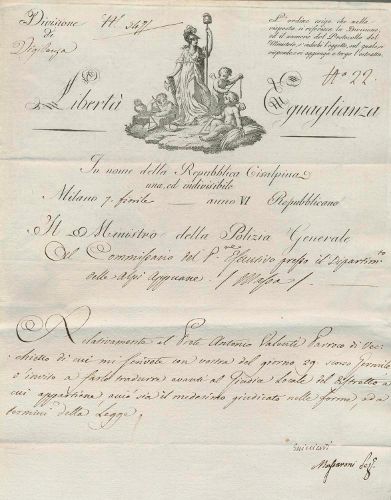 Divisione
di
Vigilanza
N. 3471
L'ordine esige che nella
risposta si riferisca la Divisione,
ed il numero del Protocollo del
Ministro, e sotto l'oggetto, sul quale si
risponde, si aggiunga a tergo l'estratto.
N.o 22.
Libertà Eguaglianza
In nome della Repubblica Cisalpina
una, ed indivisibile
Milano 7 fiorile — anno VI Repubblicano
Il Ministro della Polizia Generale
Al Commissario del P.re Esecutivo presso il Dipartim.to
delle Alpi Appuane / Massa /
Relativamente al Prete Antonio Valenti Parroco di
di cui mi scrivete con vostra del giorno 29 scorso Germile
v'invito a farlo tradurre avanti al Giudice Locale del Distretto a
cui appartiene acciò sia il medesimo giudicato nelle forme, ed a
termini della Legge.
Massaroni